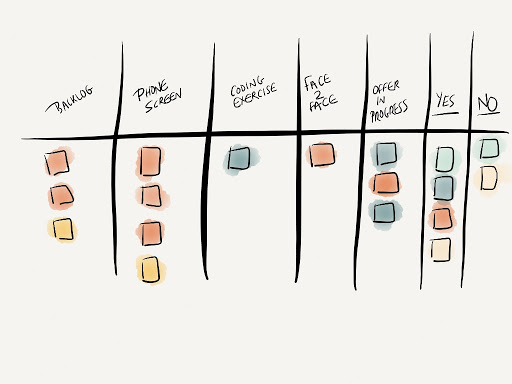 BACKLOG
PHONE
SCREEN
CODING
EXERCISE
FACE
2
FACE
OFFER
IN
PROGRESS
YES
NO